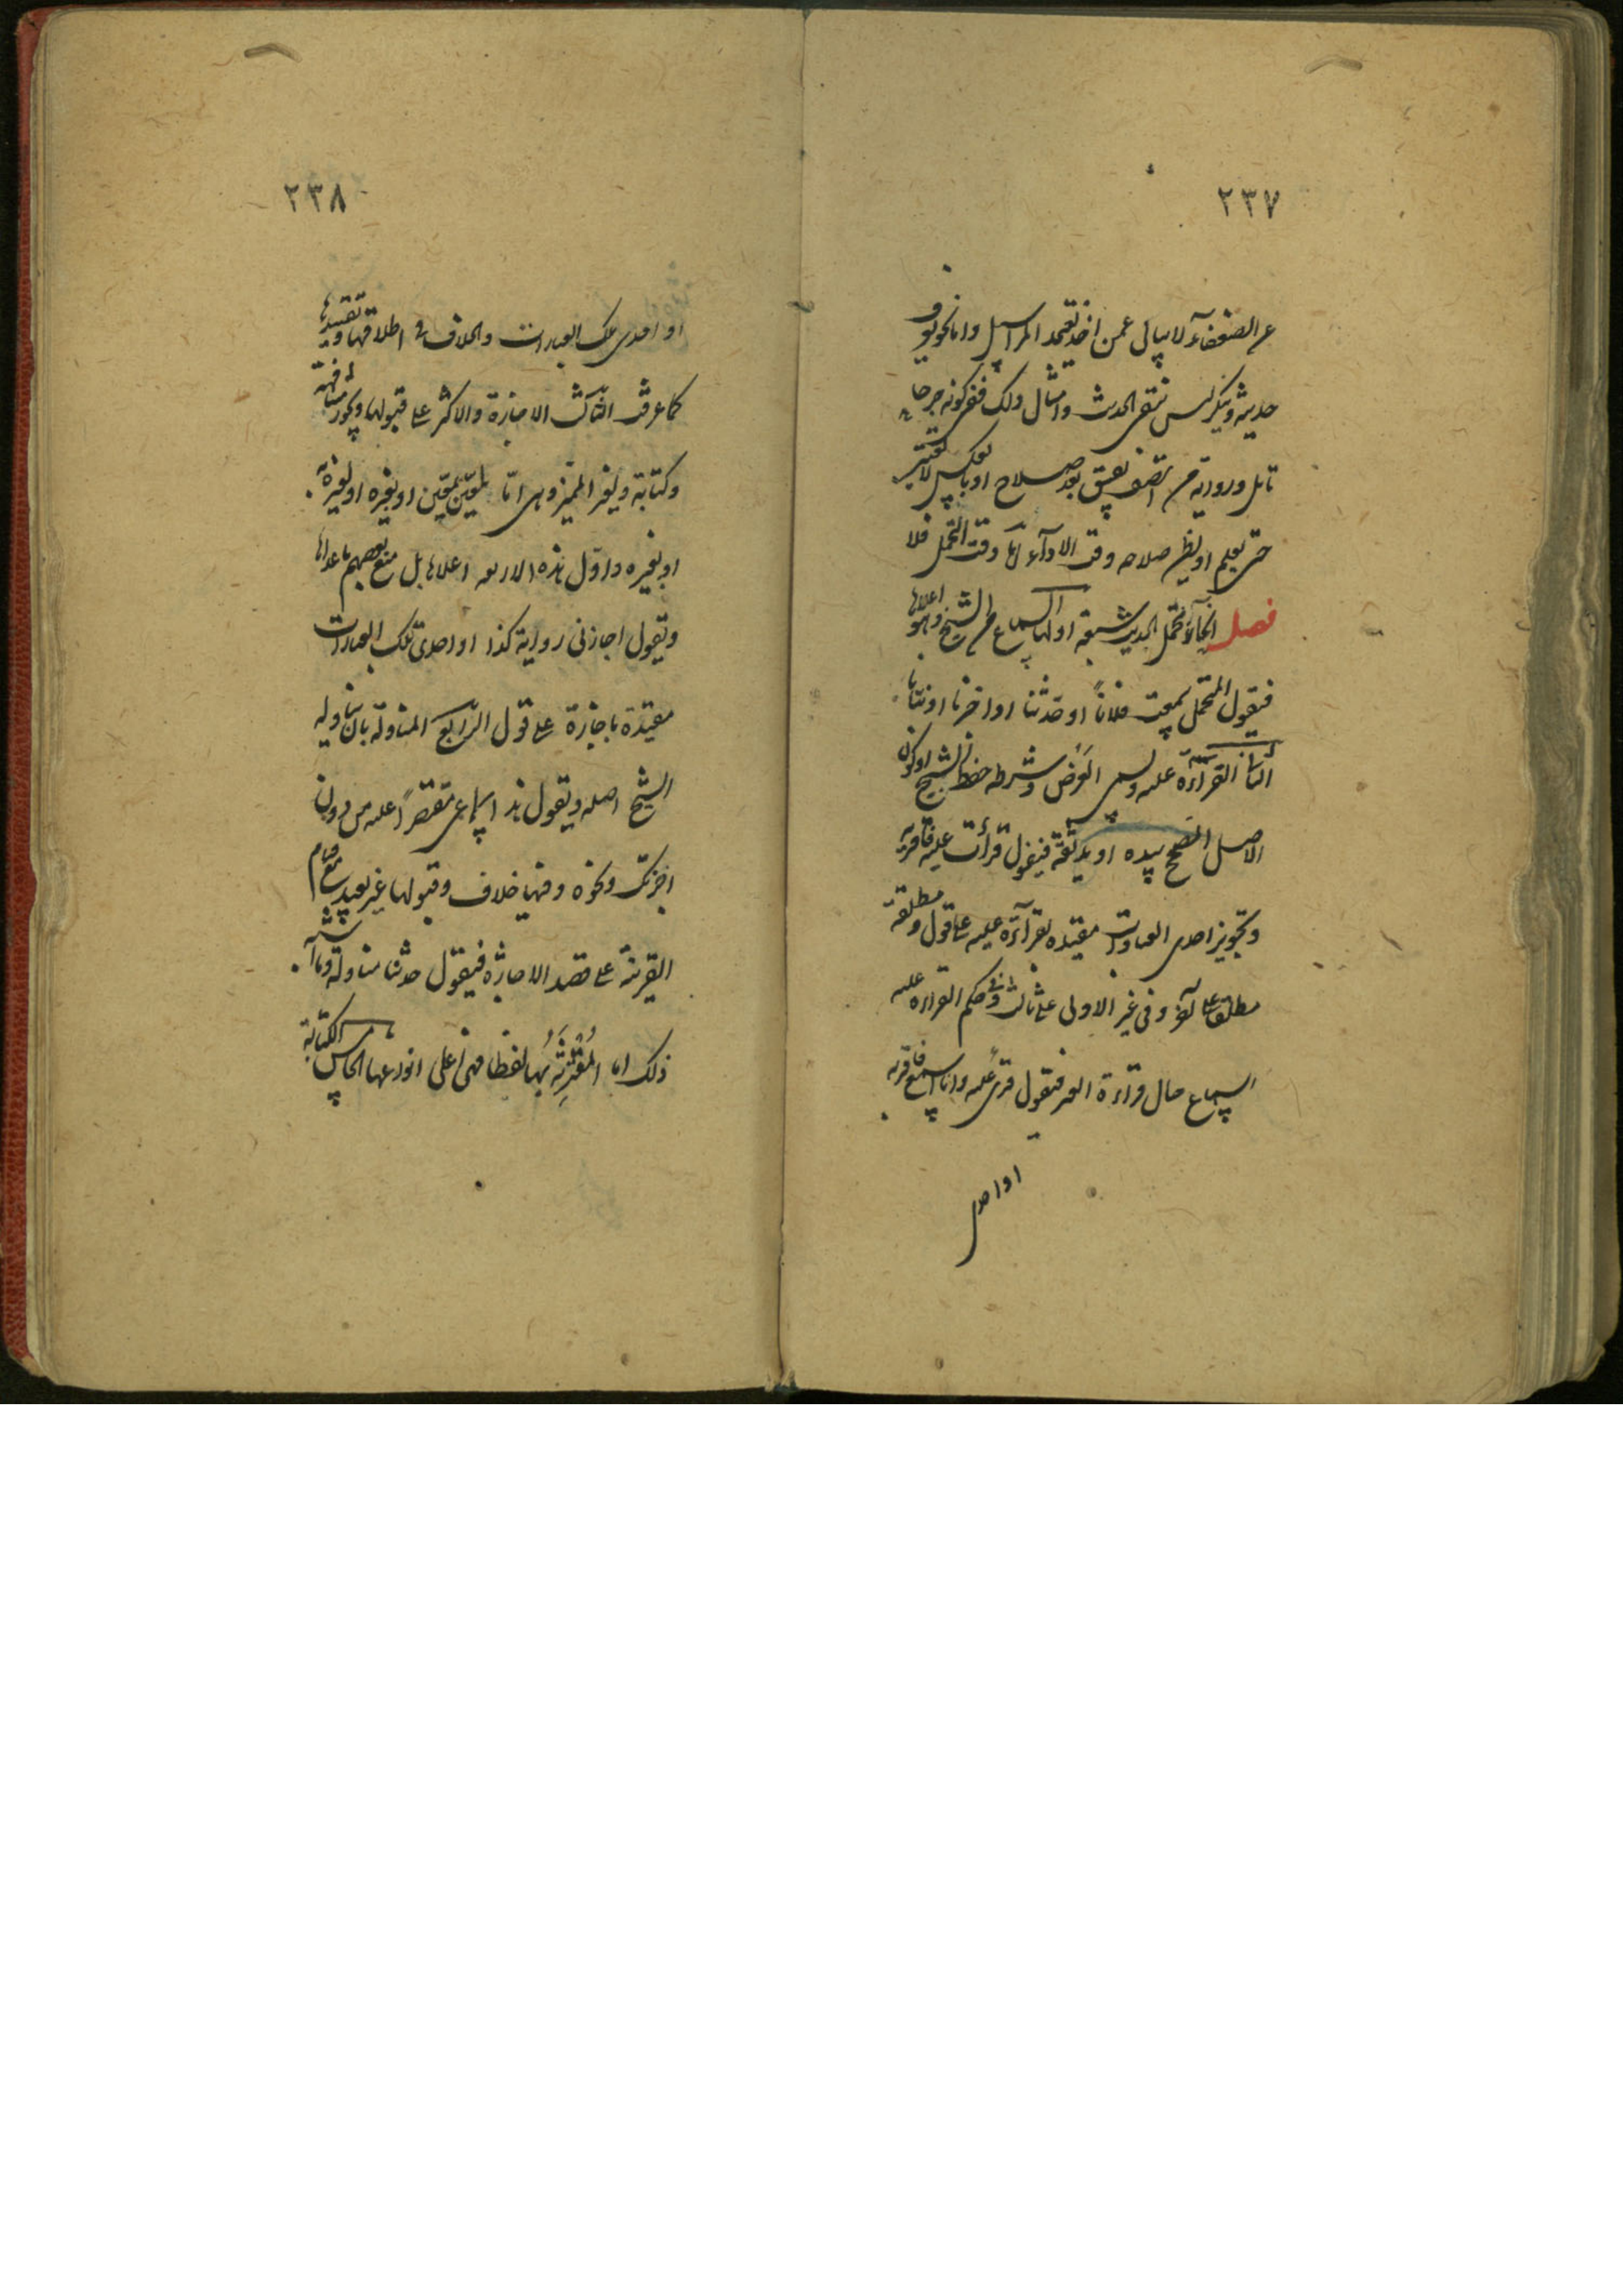 ٢٣٧
عن الضعفاء لا يبالي عمن اخذ يعتمد المراسيل واما نحو يعرف
حديثه وينكر ليس بنقي الحديث وامثال ذلك ففي كونه جرحا
تامل ورواية من اتصف بفسق بعد صلاح او بالعكس لا تعتبر
حتى يعلم او يظن صلاحه وقت الاداء اما وقت التحمل فلا
فصل انحاء تحمل الحديث سبعة اولها السماع من الشيخ وهو اعلاها
فيقول المتحمل سمعت فلانا او حدثنا او اخبرنا او نبانا
الثاني القراءة عليه ويسمى العرض وشرطه حفظ الشيخ او كون
الاصل المصحح بيده او يد ثقة فيقول قرأت عليه فاقر به
ويجوز احدى العبارات مقيدة بقراءة عليه على قول ومطلقة
مطلقا على آخر وفي غير الاولى على ثالث وفي حكم القراءة عليه
السماع حال قراءة الغير فيقول قرئ عليه وانا اسمع فاقر به
او احدى
٢٣٨
او احدى تلك العبارات والخلاف في اطلاقها وتقييدها
كما عرفت الثالث الاجازة والاكثر على قبولها ويجوز مشافهة
وكتابة ولغير المميز وهي اما بمعين لمعين او بغيره او لغيره
او بغيره واول هذه الاربعة اعلاها بل منع بعضهم ما عداها
ويقول اجازني رواية كذا او احدى تلك العبارات
مقيدة باجازة على قول الرابع المناولة بان يناوله
الشيخ اصله ويقول هذا سماعي مقتصرا عليه من دون
اجزتك ونحوه وفيها خلاف وقبولها غير بعيد مع قيام
القرينة على قصد الاجازة فيقول حدثنا مناولة وما اشبه
ذلك اما المقترنة بها لفظا فهي اعلى انواعها الخامس الكتابة